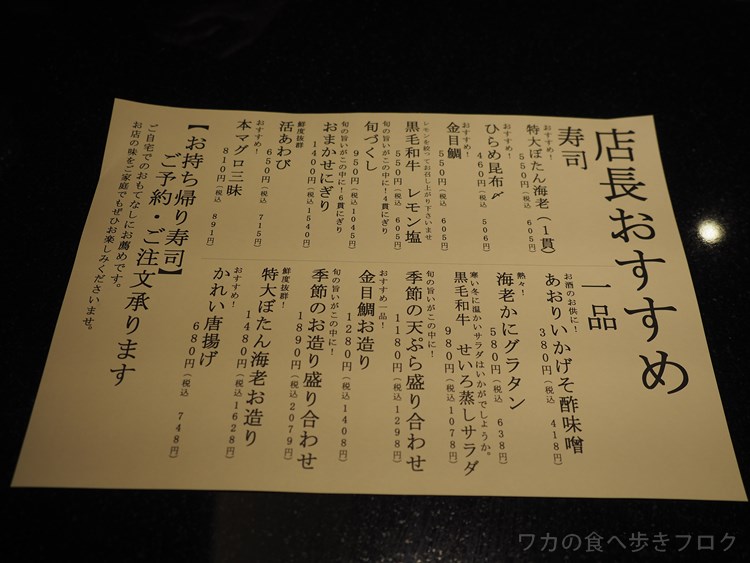 店長おすすめ
寿司
おすすめ！
特大ぼたん海老（１貫）
550円（税込 605円）
おすすめ！
ひらめ昆布〆
460円（税込 506円）
おすすめ！
金目鯛
550円（税込 605円）
レモンを絞ってお召し上がり下さいませ
黒毛和牛 レモン塩
550円（税込 605円）
旬の旨いがこの中に！４貫にぎり
旬づくし
950円（税込1045円）
旬の旨いがこの中に！６貫にぎり
おまかせにぎり
1400円（税込1540円）
鮮度抜群！
活あわび
650円（税込 715円）
おすすめ！
本マグロ三昧
810円（税込 891円）
一品
お酒のお供に！
あおりいかげそ酢味噌
380円（税込 418円）
熱々！
海老かにグラタン
580円（税込 638円）
寒い冬に温かいサラダはいかがでしょうか。
黒毛和牛 せいろ蒸しサラダ
980円（税込1078円）
旬の旨いがこの中に！
季節の天ぷら盛り合わせ
1180円（税込1298円）
おすすめ一品！
金目鯛お造り
1280円（税込1408円）
旬の旨いがこの中に！
季節のお造り盛り合わせ
1890円（税込2079円）
鮮度抜群！
特大ぼたん海老お造り
1480円（税込1628円）
おすすめ！
かれい唐揚げ
680円（税込 748円）
【お持ち帰り寿司】
ご予約・ご注文承ります
ご自宅でのおもてなしにお薦めです。
お店の味をご家庭でもぜひお楽しみくださいませ。
ワカの食べ歩きブログ